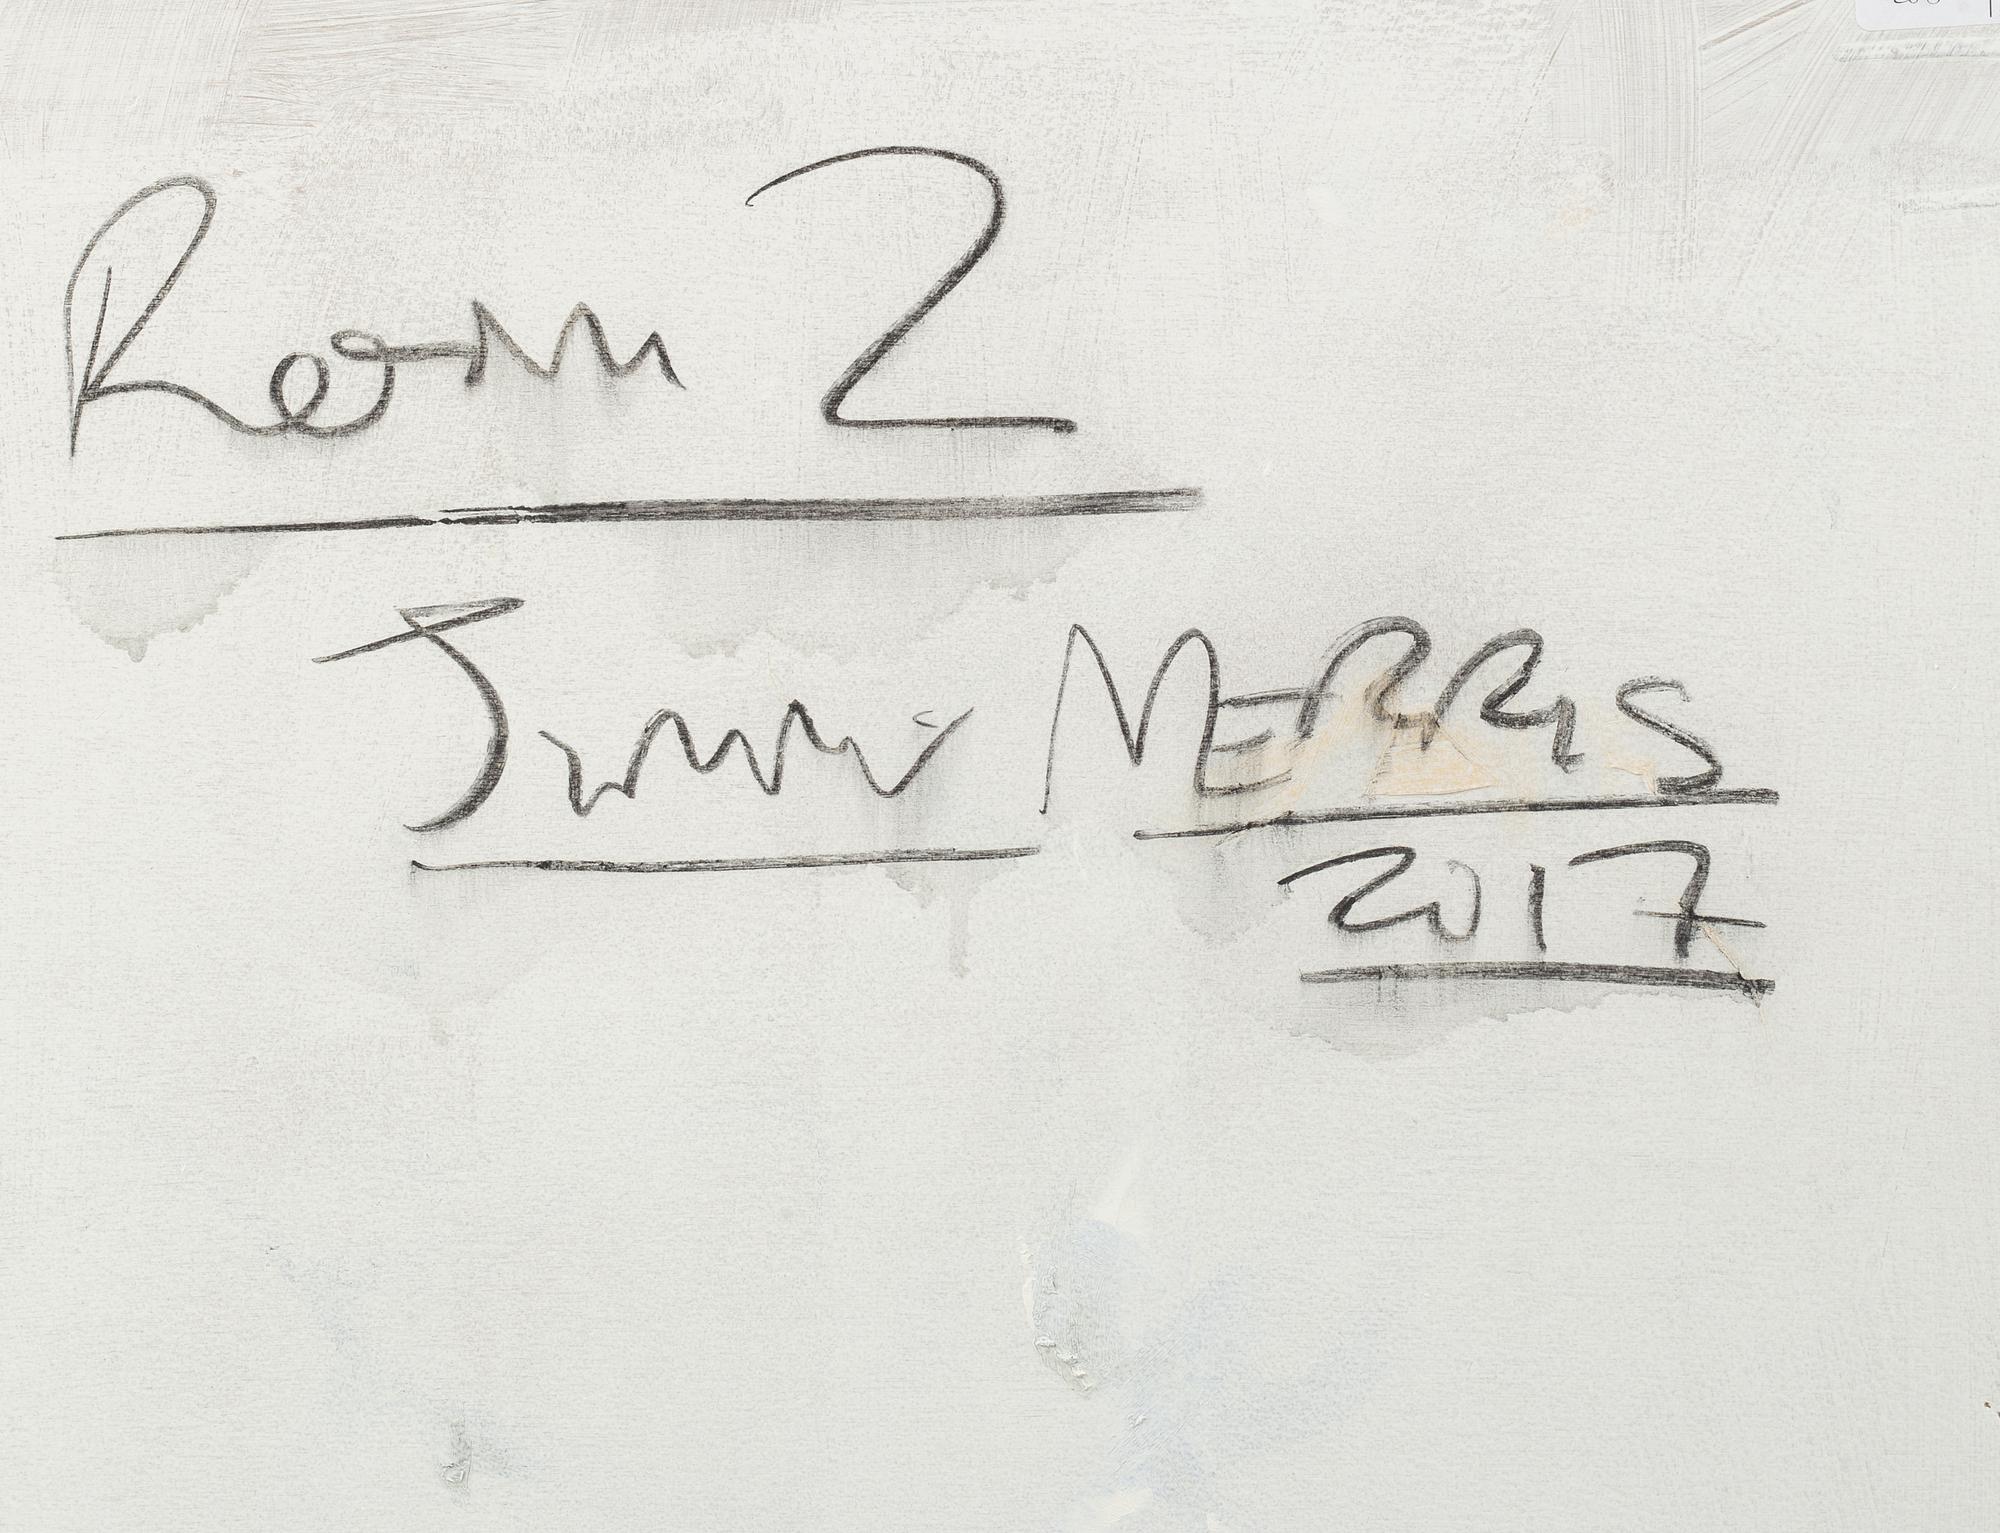 Room 2
Jimmi MERRIS
2017